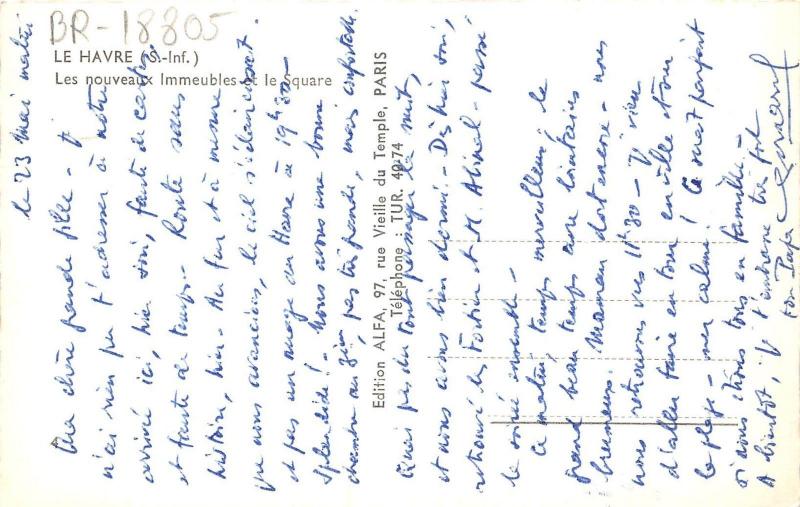 BR-18805
LE HAVRE (S.-Inf.)
Les nouveaux Immeubles et le Square
Edition ALFA, 97, rue Vieille du Temple, PARIS
Téléphone : TUR. 40-74
le 23 mai matin
Ma chère grande fille - J'
n'ai rien pu t'adresser à notre
arrivée ici, hier soir, faute de cartes
et faute de temps - Route sans
histoire, hier - Au fur et à mesure
que nous avancions, le ciel s'éclaircissait
et pas un nuage au Havre à 19h30 -
Splendide ! - Nous avons une bonne
chambre au 3ème, pas très grande, mais confortable.
Quai pas du tout passager la nuit,
et nous avons bien dormi - Dès hier soir,
retrouvé les Fortier et M. - passé
la soirée ensemble -
Ce matin, temps merveilleux le
grand beau temps avec lointains
brumeux. Maman dort encore - nous
nous retrouvons vers 11h30 - J'viens
d'aller faire un tour en ville et sur
la plage - mer calme ! Ce serait parfait
si nous étions tous en famille -
A bientôt, J't'embrasse très fort
ton Papa
Bernard